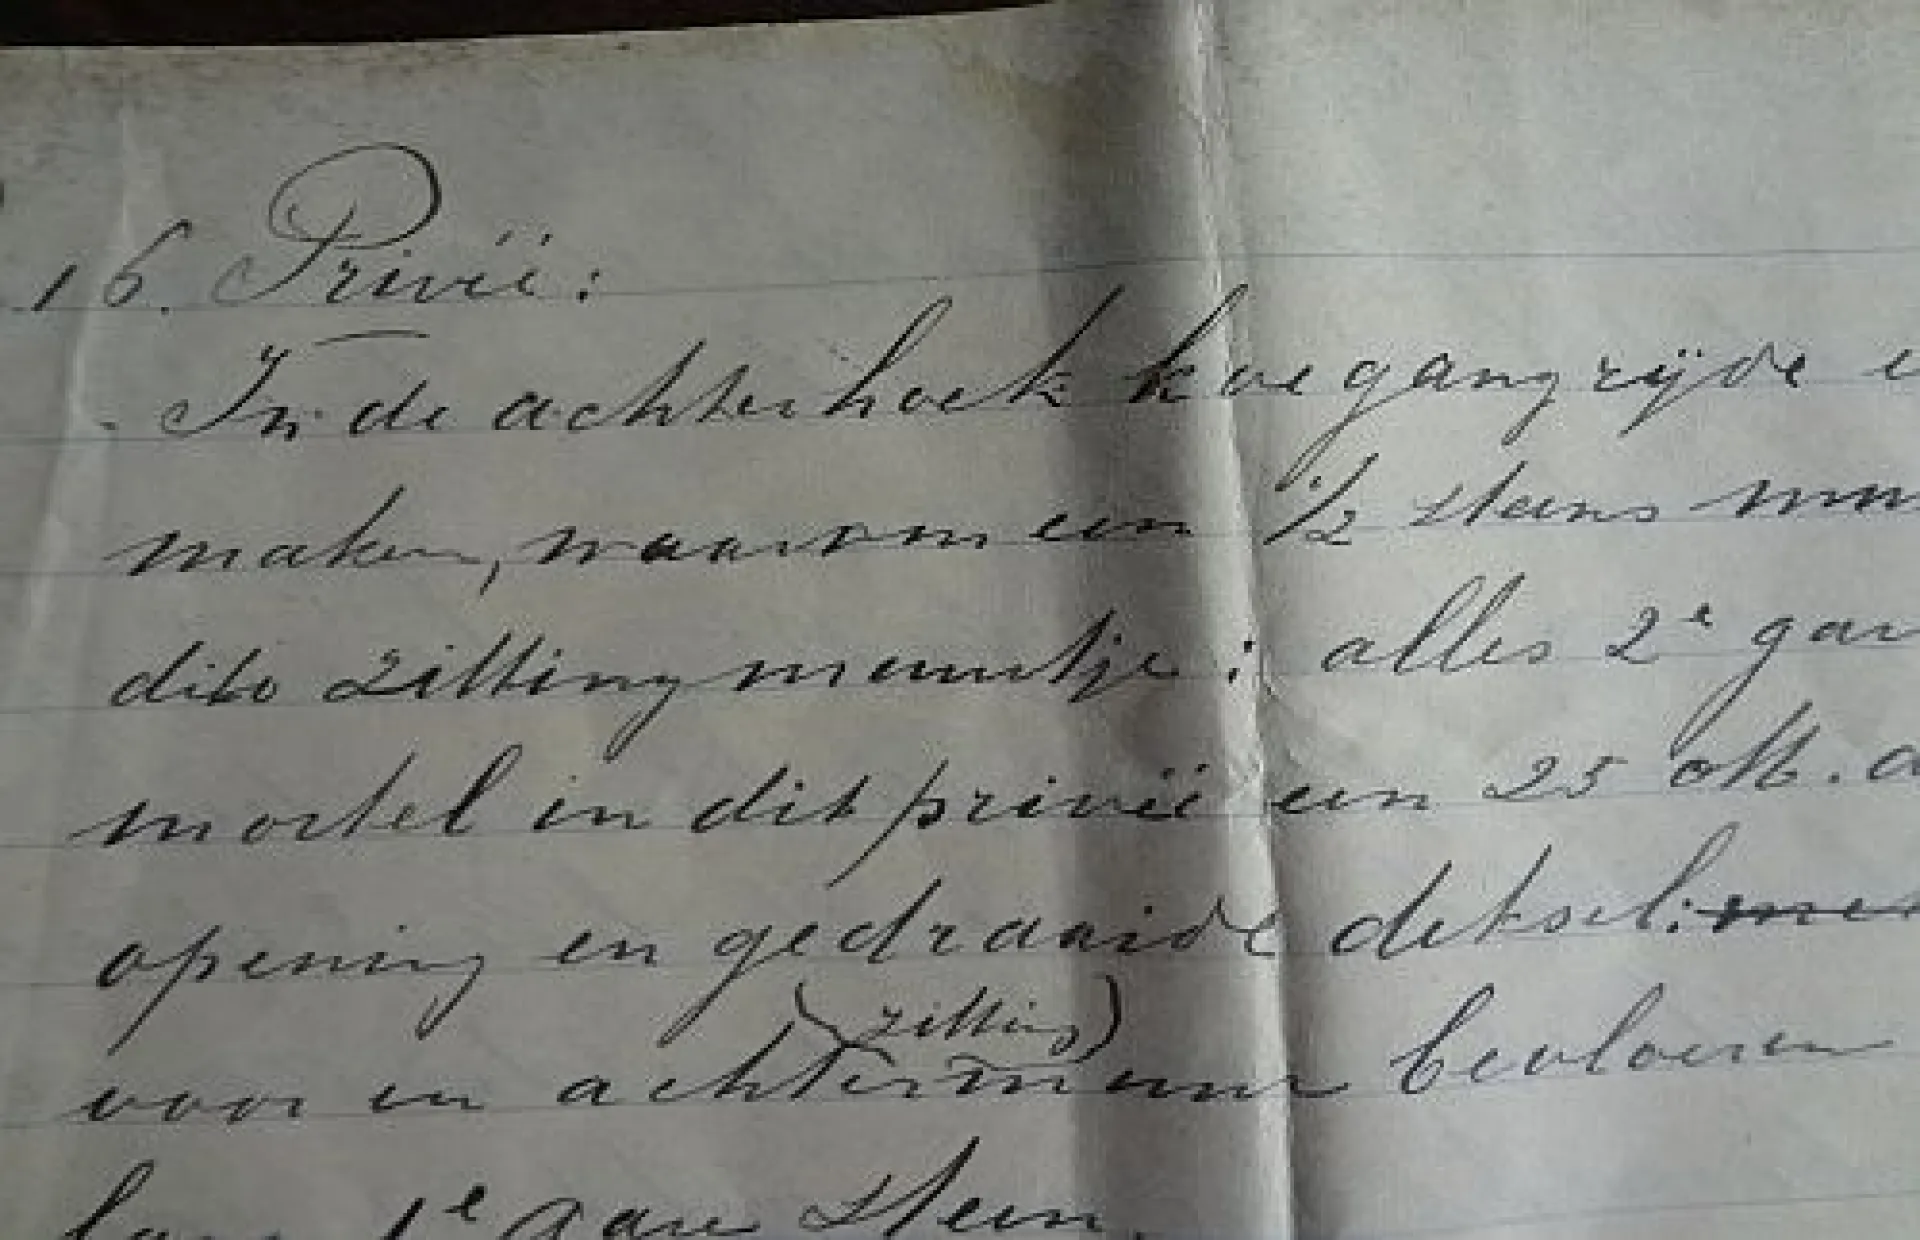 16. Privéé:
In de achterhoek koegangzijde e
maken, waarom een 1/2 steens muu
dito zitting muurtje; alles 2e gar
mortel in dit privéé een 25 
opening en gedraaide deksel: met
(zitting)
voor en achtermuur bevloeren
laag 1e gave steen.